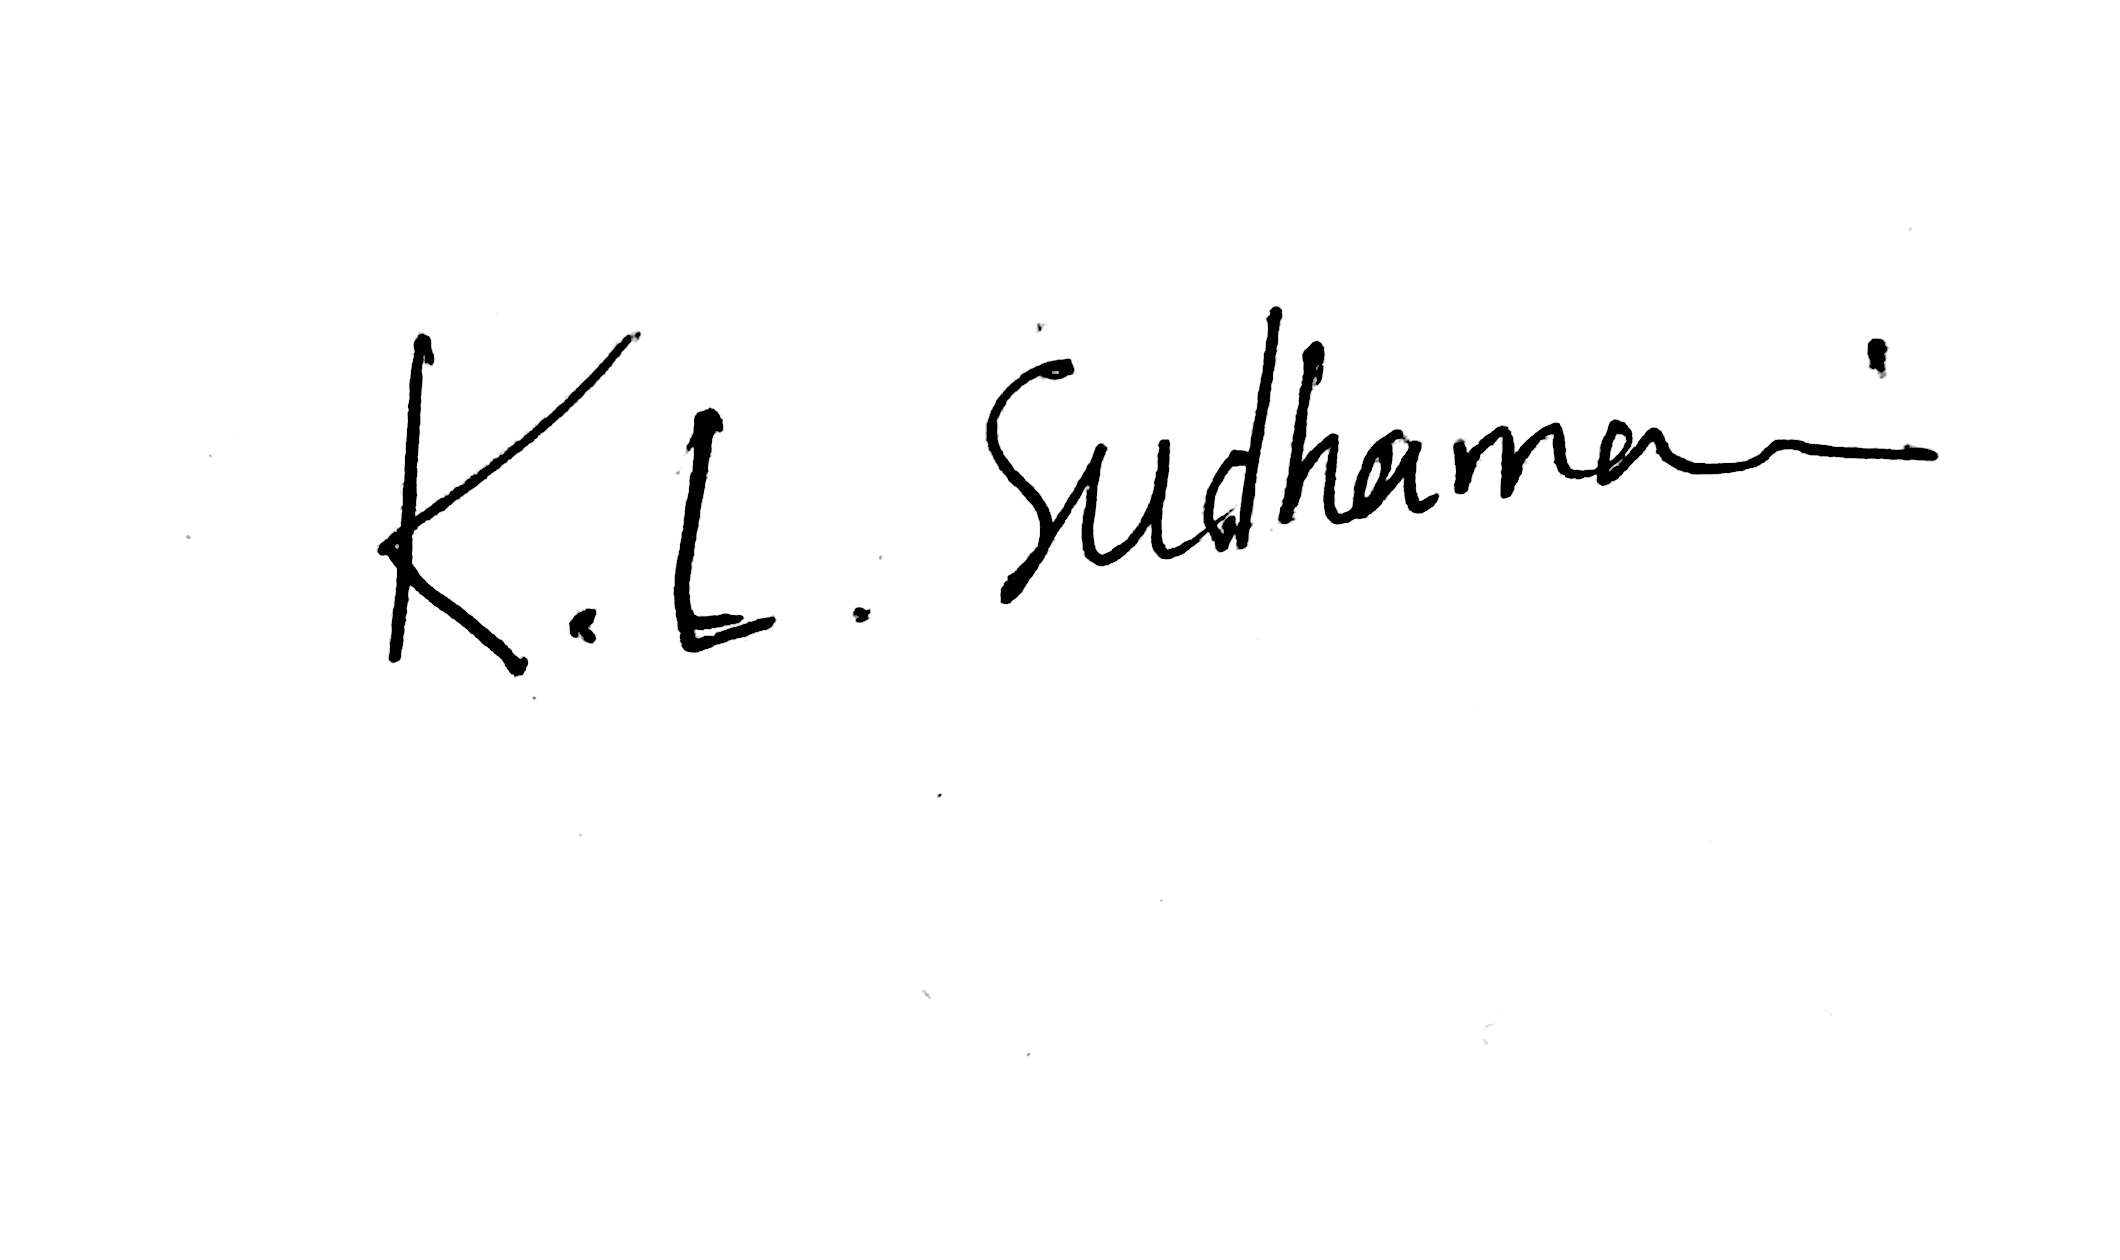 K. L. Sudhamani